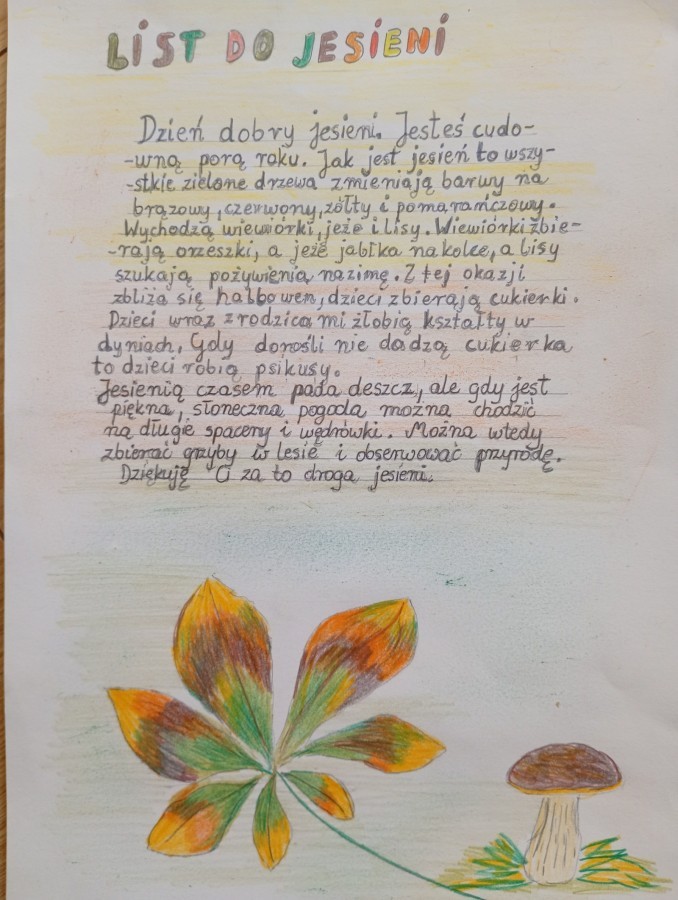 LIST DO JESIENI
Dzień dobry jesieni. Jesteś cudo-
-wną porą roku. Jak jest jesień to wszy-
-stkie zielone drzewa zmieniają barwy na
brązowy, czerwony, żółty i pomarańczowy.
Wychodzą wiewiórki, jeże i lisy. Wiewiórki zbie-
-rają orzeszki, a jeże jabłka na kolce, a lisy
szukają pożywienia na zimę. Z tej okazji
zbliża się halbowen, dzieci zbierają cukierki.
Dzieci wraz z rodzicami żłobią kształty w
dyniach. Gdy dorośli nie dadzą cukierka
to dzieci robią psikusy.
Jesienią czasem pada deszcz, ale gdy jest
piękna, słoneczna pogoda można chodzić
na długie spacery i wędrówki. Można wtedy
zbierać grzyby w lesie i obserwować przyrodę.
Dziękuję Ci za to droga jesieni.